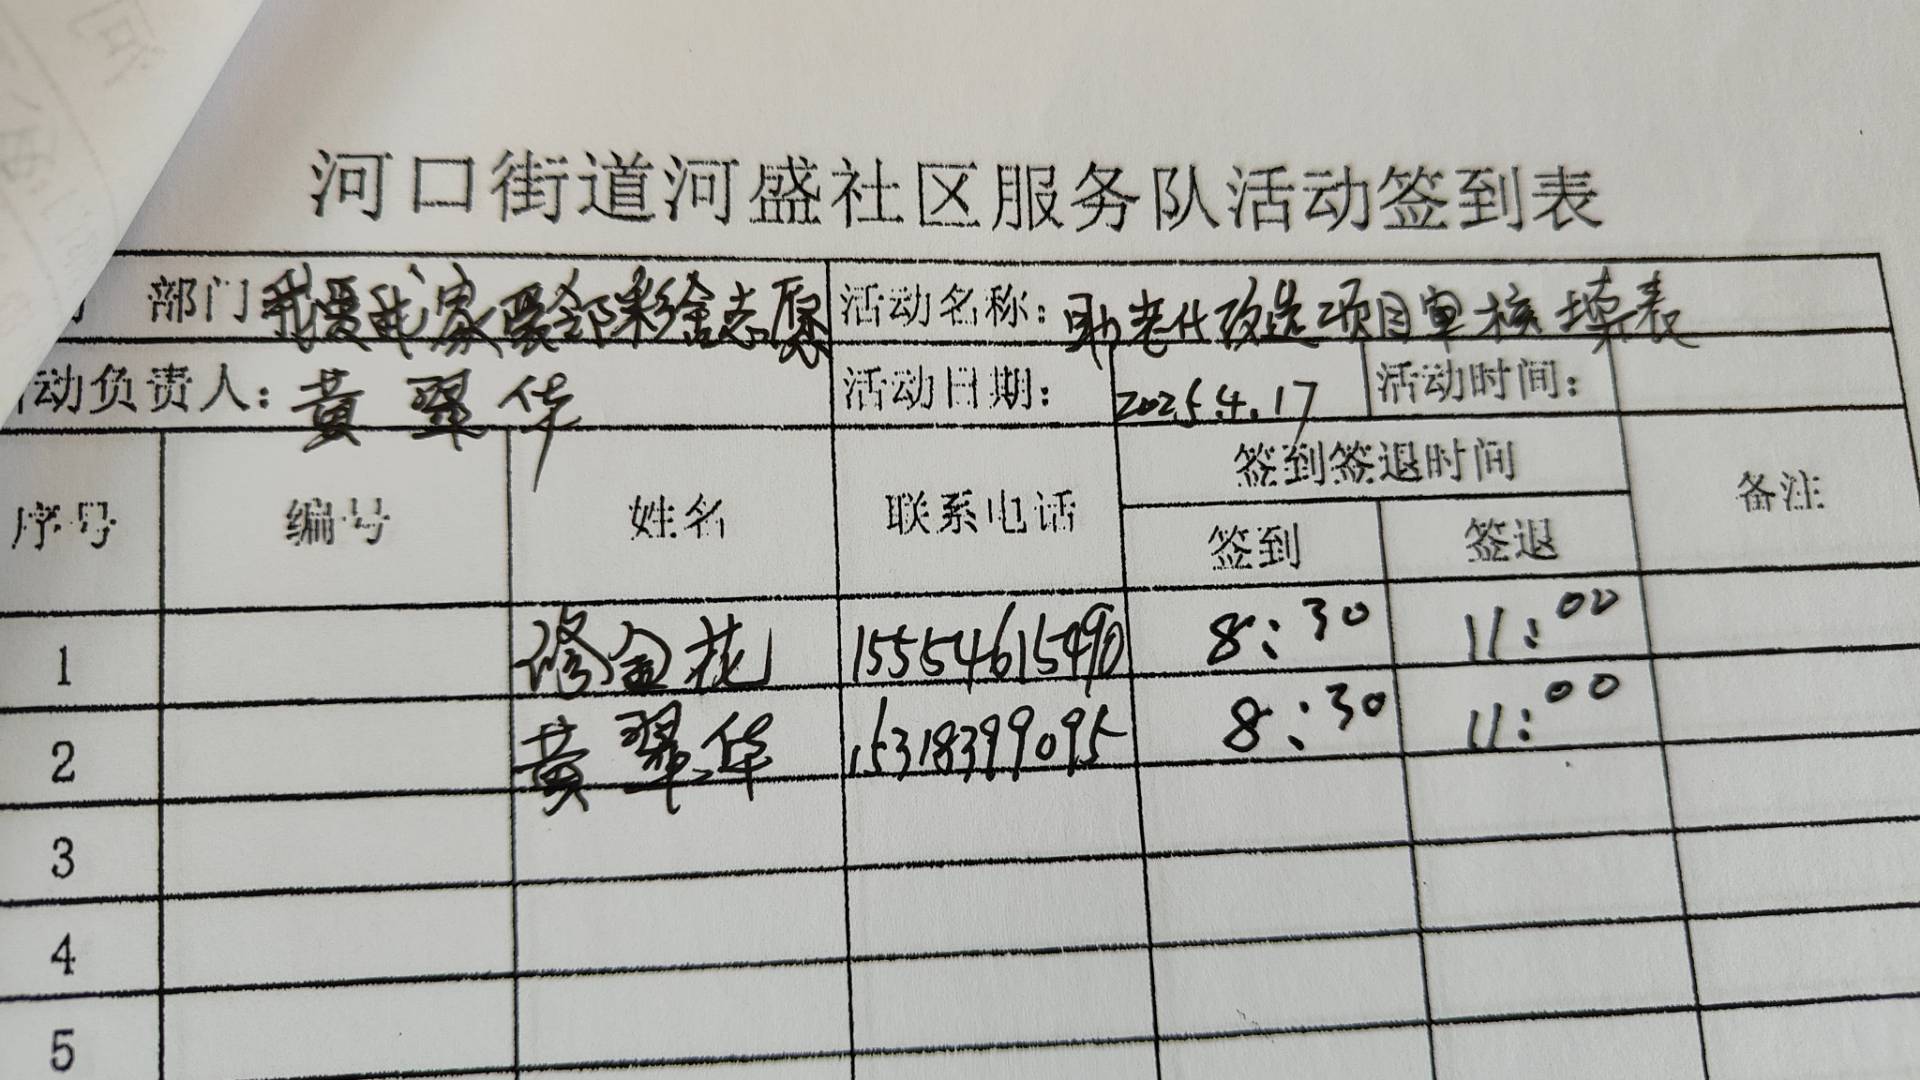 河口街道河盛社区服务队活动签到表
部门 我爱我家 志愿 活动名称: 助老化改造项目审核填表
动负责人: 黄翠华 活动日期: 2025.4.17 活动时间:
序号 编号 姓名 联系电话 签到签退时间 备注
签到 签退
1 修金花 15554615490 8:30 11:00
2 黄翠华 15318399095 8:30 11:00
3
4
5